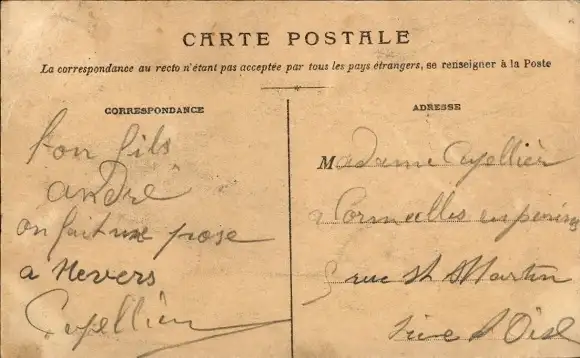 CARTE POSTALE
La correspondance au recto n'étant pas acceptée par tous les pays étrangers, se renseigner à la Poste
CORRESPONDANCE
ton fils
andré
on fait une pose
a Nevers
ADRESSE
Madame
a Cormeilles en
rue St Martin
d'Oise